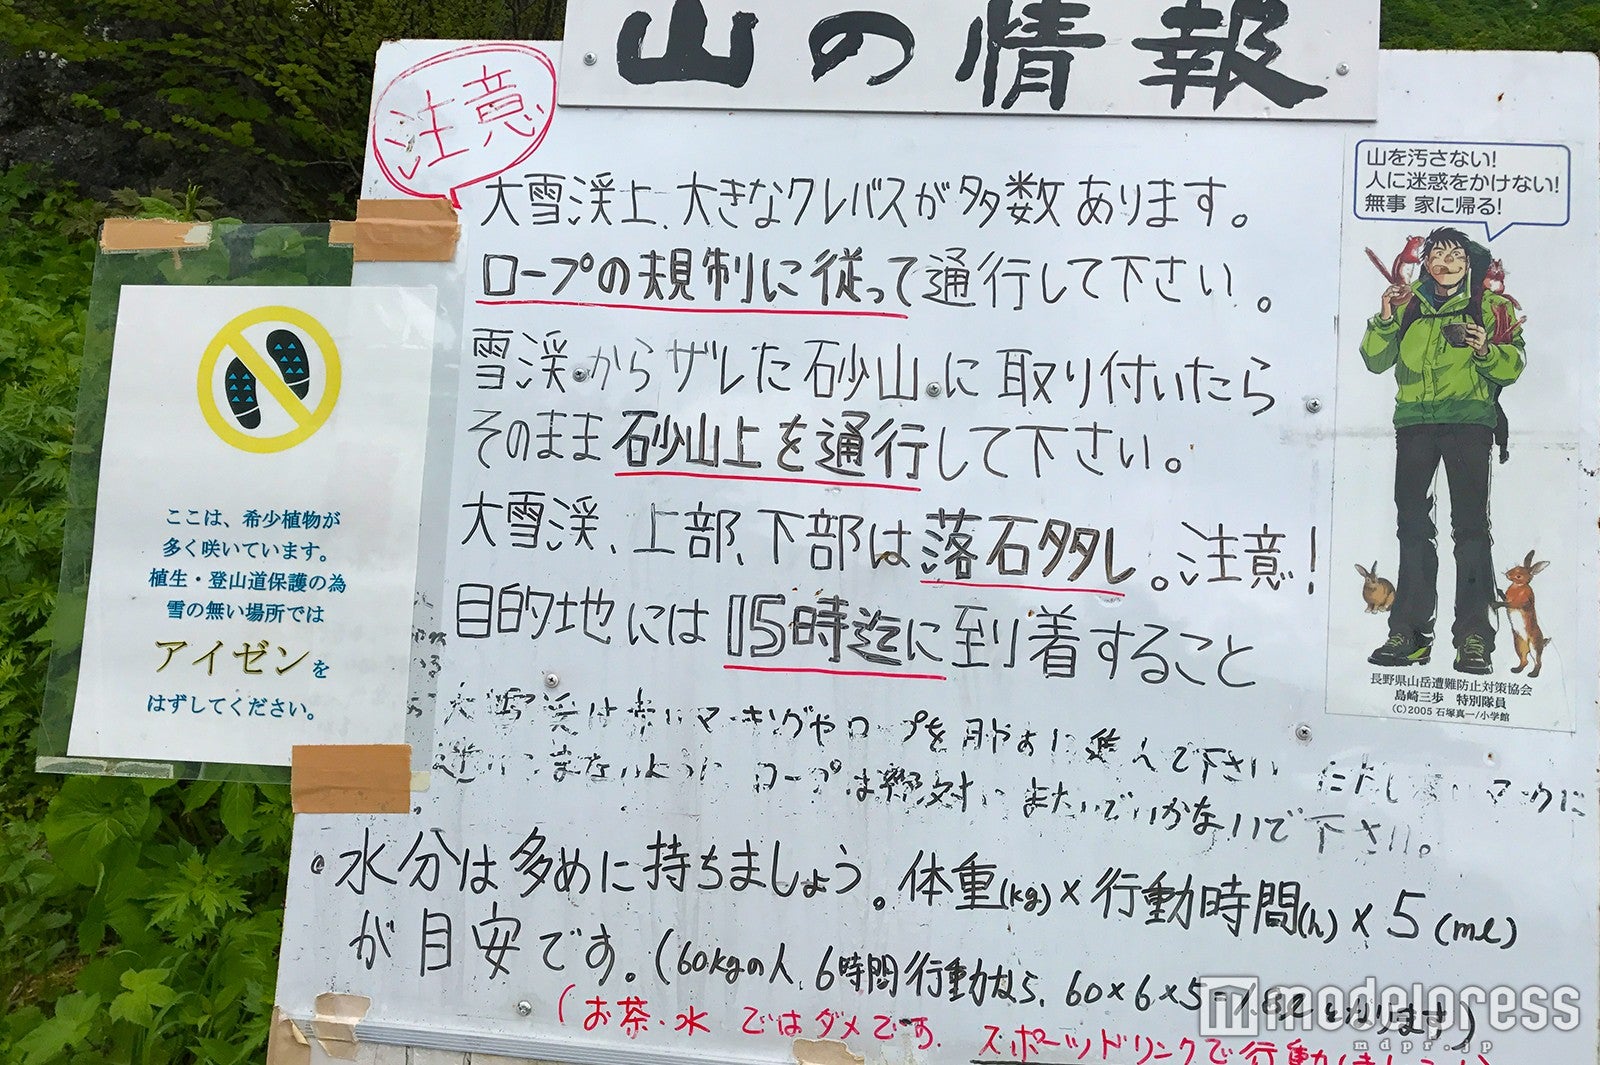 山の情報
注意
大雪渓上、大きなクレバスが多数あります。
ロープの規制に従って通行して下さい。
雪渓からザレた砂山に取り付いたら
そのまま砂山上を通行して下さい。
大雪渓、上部、下部は落石多し。注意!
目的地には15時迄に到着すること
大雪渓は赤いマーキングやロープを目やすに進んで下さい
ロープは絶対にまたいでいかないで下さい。
・水分は多めに持ちましょう。体重(kg)×行動時間(h)×5(ml)
が目安です。(60kgの人、6時間行動なら、60×6×5=1.8ℓになります)
(お茶・水 ではダメです。スポーツドリンクで行動しましょう)
ここは、希少植物が
多く咲いています。
植生・登山道保護の為
雪の無い場所では
アイゼンを
はずしてください。
山を汚さない!
人に迷惑をかけない!
無事 家に帰る!
長野県山岳遭難防止対策協会
島崎三歩 特別隊員
(C)2005 石塚真一/小学館
modelpress
mdpr.jp